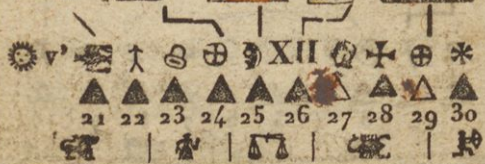 v' XII
21 22 23 24 25 26 27 28 29 30